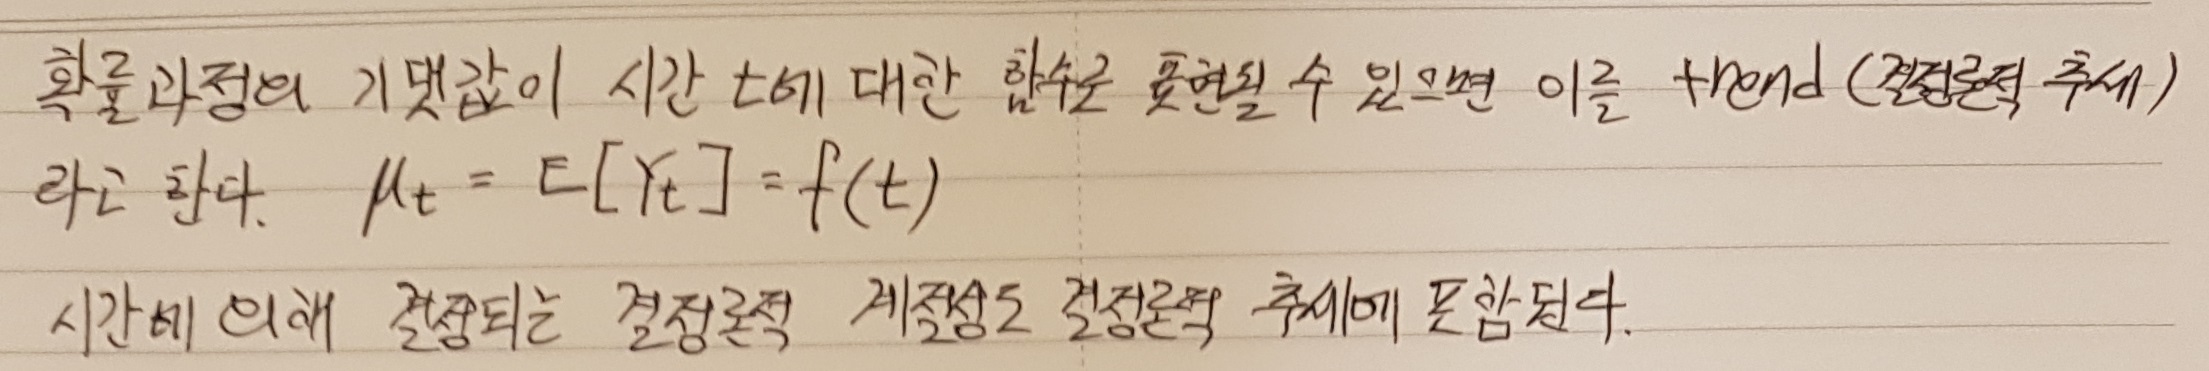 확률과정의 기댓값이 시간 t에 대한 함수로 표현될 수 있으면 이를 trend (결정론적 추세)
라고 한다. μt = E[Yt] = f(t)
시간에 의해 결정되는 결정론적 계절성도 결정론적 추세에 포함된다.